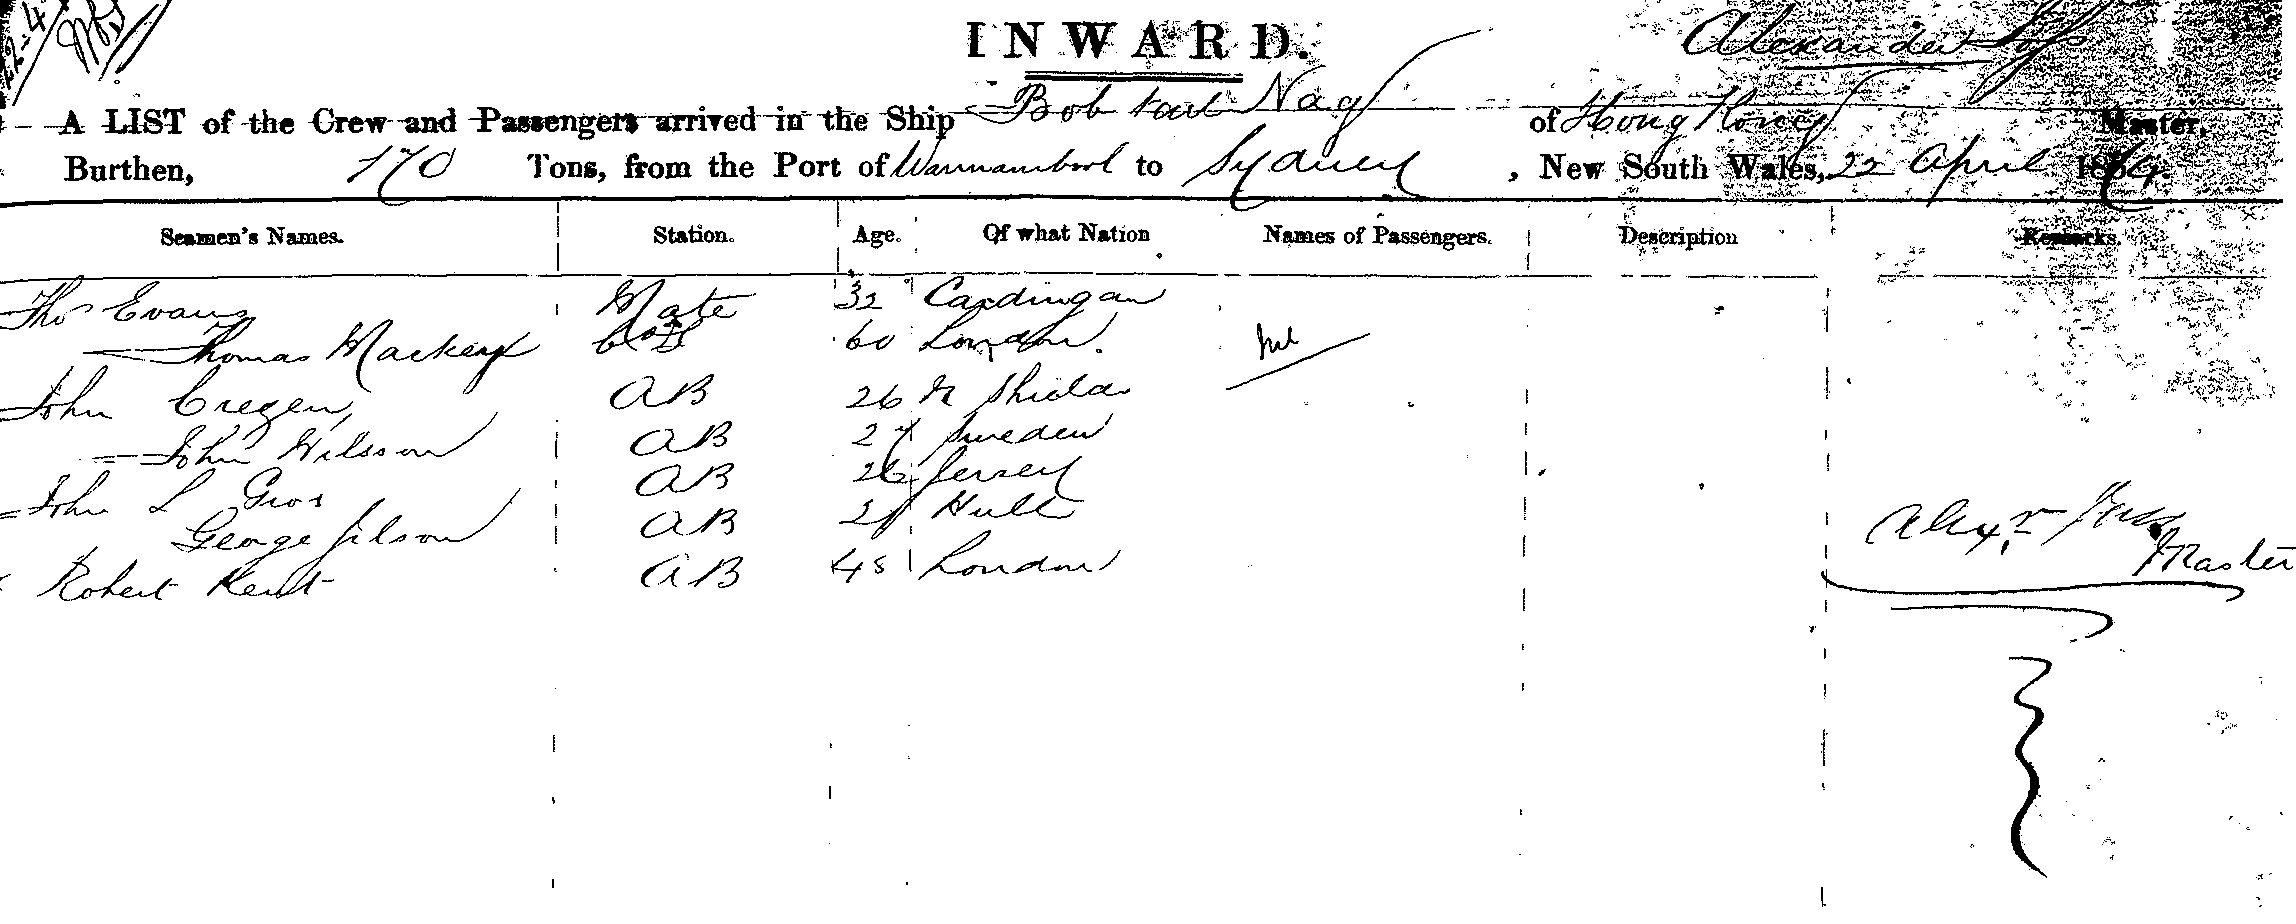 22-4
INWARD.
Alexander
A LIST of the Crew and Passengers arrived in the Ship Bob tail Nag of Hong Kong Master,
Burthen, 170 Tons, from the Port of Warrnambool to Sydney, New South Wales, 22 April 1864.
Seamen's Names. Station. Age. Of what Nation Names of Passengers. Description Remarks.
Tho Evans Mate 32 Cardingan
Thomas Mackenzie 60 London.
Nil
John Cregen, AB 26 N Shields
John Wilsson AB 27 Sweden
John L Gros AB 26 Jersey
George Jilson AB 21 Hull
Robert Kent AB 45 London
Alexr
Master